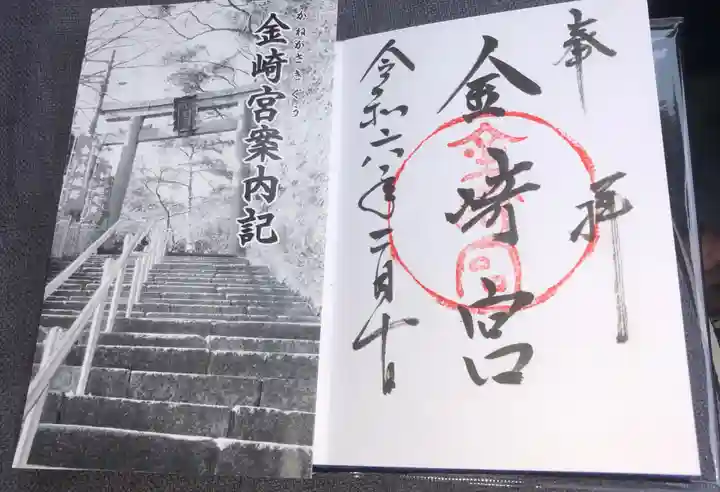 かねがさきぐう
金崎宮案内記
奉拝
金崎宮
令和六年二月十日